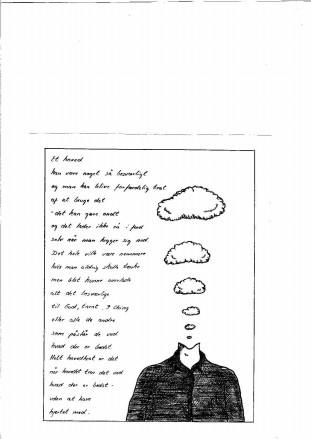 Et hoved
kan være noget så besværligt
og man kan blive forfærdelig træt
af at bruge det
- det kan gøre ondt
og det falder ikke så i fred
selv når man lægger sig ned
Det hele ville være nemmere
hvis man aldrig skulle tænke
men blot kunne overlade
alt det besværlige
til Gud, tarot, I Ching
eller alle de andre
som påstår de ved
hvad der er bedst.
Helt hovedløst er det
når hovedet tror det ved
hvad der er bedst -
uden at have
hjertet med.